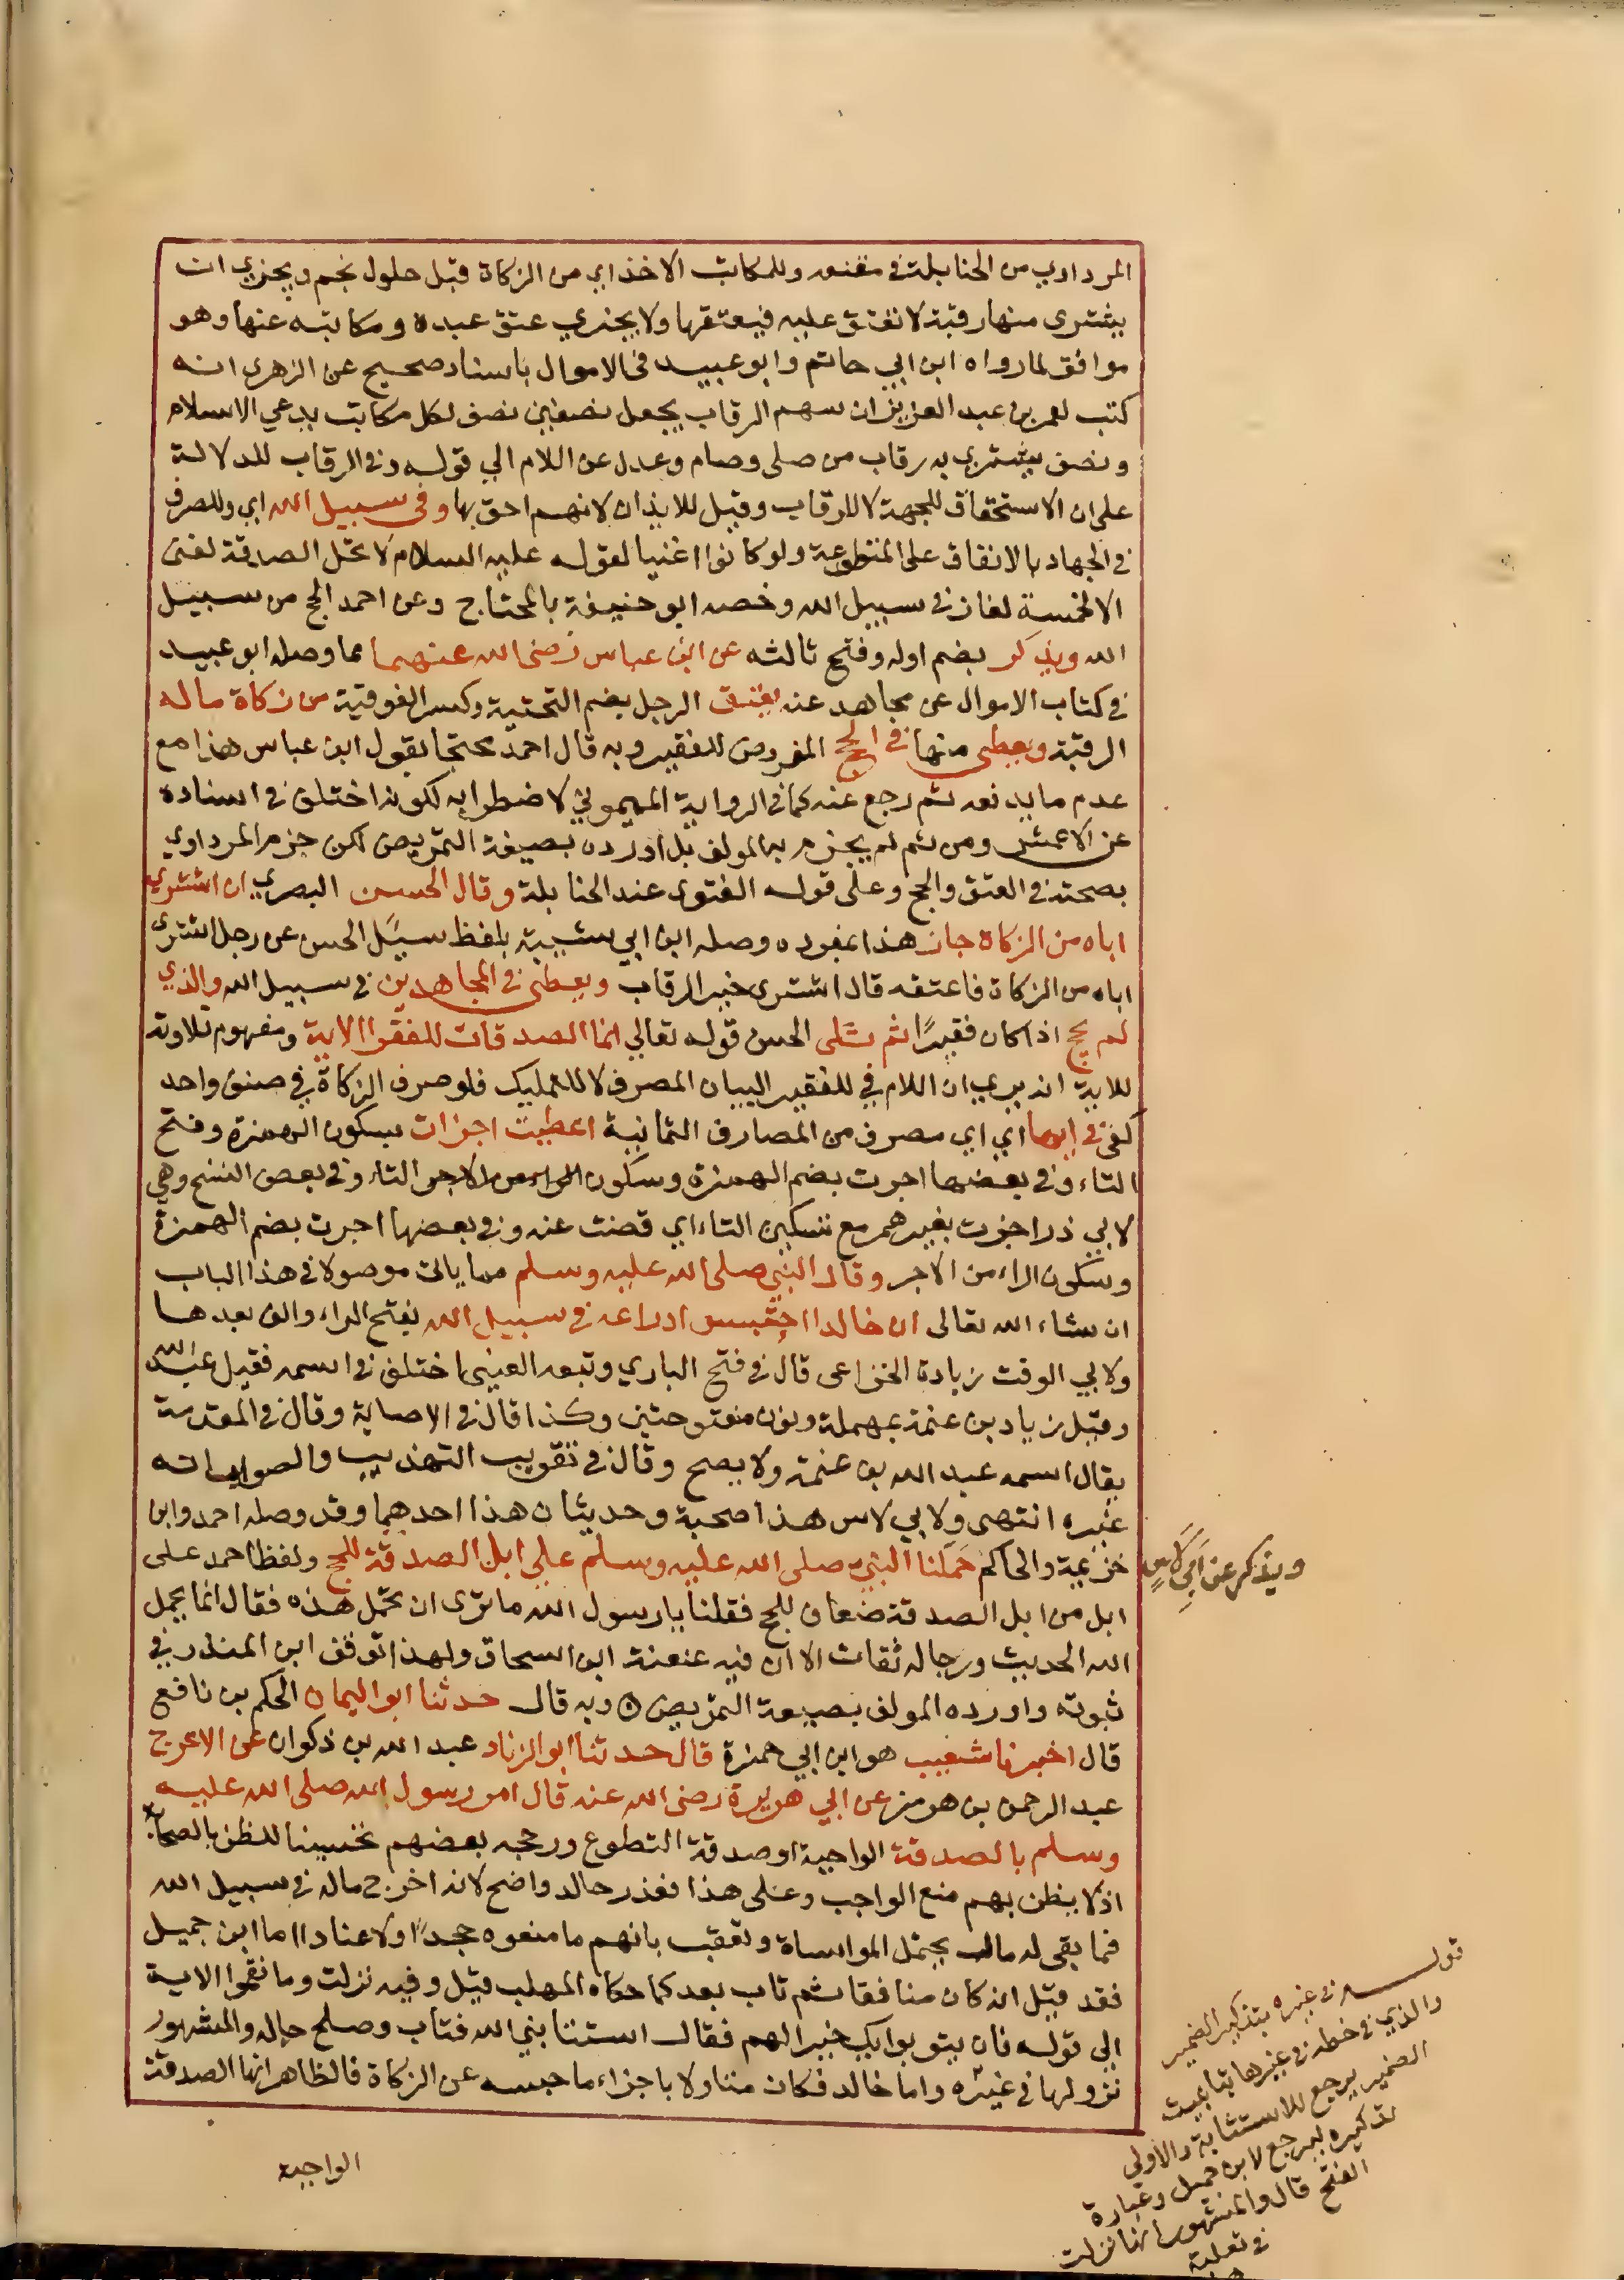 المرداوي من الحنابلة في مقنعه وللمكاتب الاخذ اي من الزكاة قبل حلول نجم ويجزي ان
يشترى منها رقبة لا تعتق عليه فيعتقها ولا يجزي عتق عبده ومكاتبه عنها وهو
موافق لما رواه ابن ابي حاتم وابو عبيد في الاموال باسناد صحيح عن الزهرى انه
كتب لعمر بن عبد العزيز ان سهم الرقاب يجعل نصفين نصف لكل مكاتب يدعي الاسلام
ونصف يشتري به رقاب من صلى وصام وعدل عن اللام الي قوله وفي الرقاب للدلالة
على ان الاستحقاق للجهة لا للرقاب وقيل للايذان لانهم احق بها وفي سبيل الله اي وللصرف
في الجهاد بالانفاق على المتطوعة ولو كانوا اغنيا لقوله عليه السلام لا تحل الصدقة لغنى
الا لخمسة لغاز في سبيل الله وخصه ابو حنيفة بالمحتاج وعن احمد الحج من سبيل
الله ويذكر بضم اوله وفتح ثالثه عن ابن عباس رضى الله عنهما مما وصله ابو عبيد
في كتاب الاموال عن مجاهد عنه يعتق الرجل بضم التحتية وكسر الفوقية من زكاة ماله
الرقبة ويعطى منها في الحج المفروض للفقير وبه قال احمد محتجا بقول ابن عباس هذا مع
عدم ما يدفعه ثم رجع عنه كما في الرواية الميموني لاضطرابه لكونه اختلف في اسناده
عن الاعمش ومن ثم لم يجزم به المولف بل اورده بصيغة التمريض لكن جزم المرداوي
بصحته في العتق والحج وعلى قوله الفتوى عند الحنابلة وقال الحسن البصري ان اشترى
اباه من الزكاة جاز هذا بمفرده وصله ابن ابي شيبة بلفظ سيل الحسن عن رجل اشترى
اباه من الزكاة فاعتقه قال اشترى خير الرقاب ويعطى في المجاهدين في سبيل الله والذي
لم يحج اذا كان فقيرًا ثم تلى الحسن قوله تعالي انما الصدقات للفقرا الاية ومفهوم تلاوته
للاية انه يرى ان اللام في للفقير لبيان المصرف لا للتمليك فلو صرف الزكاة في صنف واحد
كفى في ايها اي اي مصرف من المصارف الثمانية اعطيت اجزات بسكون الهمزة وفتح
التاء وفي بعضها اجرت بضم الهمزة وسكون الراء من الاجر التاء وفي بعض النسخ وهي
لابي ذر اجزت بغير همز مع تسكين التاء اي قضت عنه وفي بعضها اجرت بضم الهمزة
وسكون الراء من الاجر وقال النبي صلى الله عليه وسلم مما ياتى موصولا في هذا الباب
ان شاء الله تعالى ان خالدا احتبس ادراعه في سبيل الله بفتح الراء والف بعدها
ولابي الوقت زيادة الخزاعى قال في فتح الباري وتبعه العينى اختلف في اسمه فقيل عبد الله
وقيل زياد بن عنمة بمهملة ونون مفتوحتين وكذا قال في الاصابة وقال في المقدمة
يقال اسمه عبد الله بن عنمة ولا يصح وقال في تقريب التهذيب والصواب انه
غيره انتهى ولابي لاس هذا صحبة وحديثان هذا احدهما وقد وصله احمد وابن
خزيمة والحاكم حملنا النبي صلى الله عليه وسلم علي ابل الصدقة للحج ولفظ احمد على
ويذكر عن ابي لاس
ابل من ابل الصدقة ضعاف للحج فقلنا يا رسول الله ما نرى ان تحمل هذه فقال انما يحمل
الله الحديث ورجاله ثقات الا ان فيه عنعنة ابن اسحاق ولهذا توقف ابن المنذر في
ثبوته واورده المولف بصيغة التمريض وبه قال حدثنا ابو اليمان الحكم بن نافع
قال اخبرنا شعيب هو ابن ابي حمزة قال حدثنا ابو الزناد عبد الله بن ذكوان عن الاعرج
عبد الرحمن بن هرمز عن ابي هريرة رضى الله عنه قال امر رسول الله صلى الله عليه
وسلم بالصدقة الواجبة او صدقة التطوع ورجحه بعضهم تحسينا للظن بالصحابة
اذ لا يظن بهم منع الواجب وعلى هذا فعذر خالد واضح لانه اخرج ماله في سبيل الله
فما بقى له مال يحتمل المواساة وتعقب بانهم ما منعوه جحدًا ولا عنادا اما ابن جميل
فقد قيل انه كان منافقا ثم تاب بعد كما حكاه المهلب قيل وفيه نزلت وما نقموا الاية
الى قوله فان يتوبوا يك خيرا لهم فقال استتابني الله فتاب وصلح حاله والمشهور
نزولها في غيره واما خالد فكان متاولا باجزاء ما حبسه عن الزكاة فالظاهر انها الصدقة
قوله في غيره بتذكير الضمير
والذي في خطه في غيرها بتانيث
الضمير يرجع للاستتابة والاولى
تذكيره ليرجع لابن جميل وعبارة
الفتح قال والمشهور انها نزلت
في ثعلبة
الواجبة